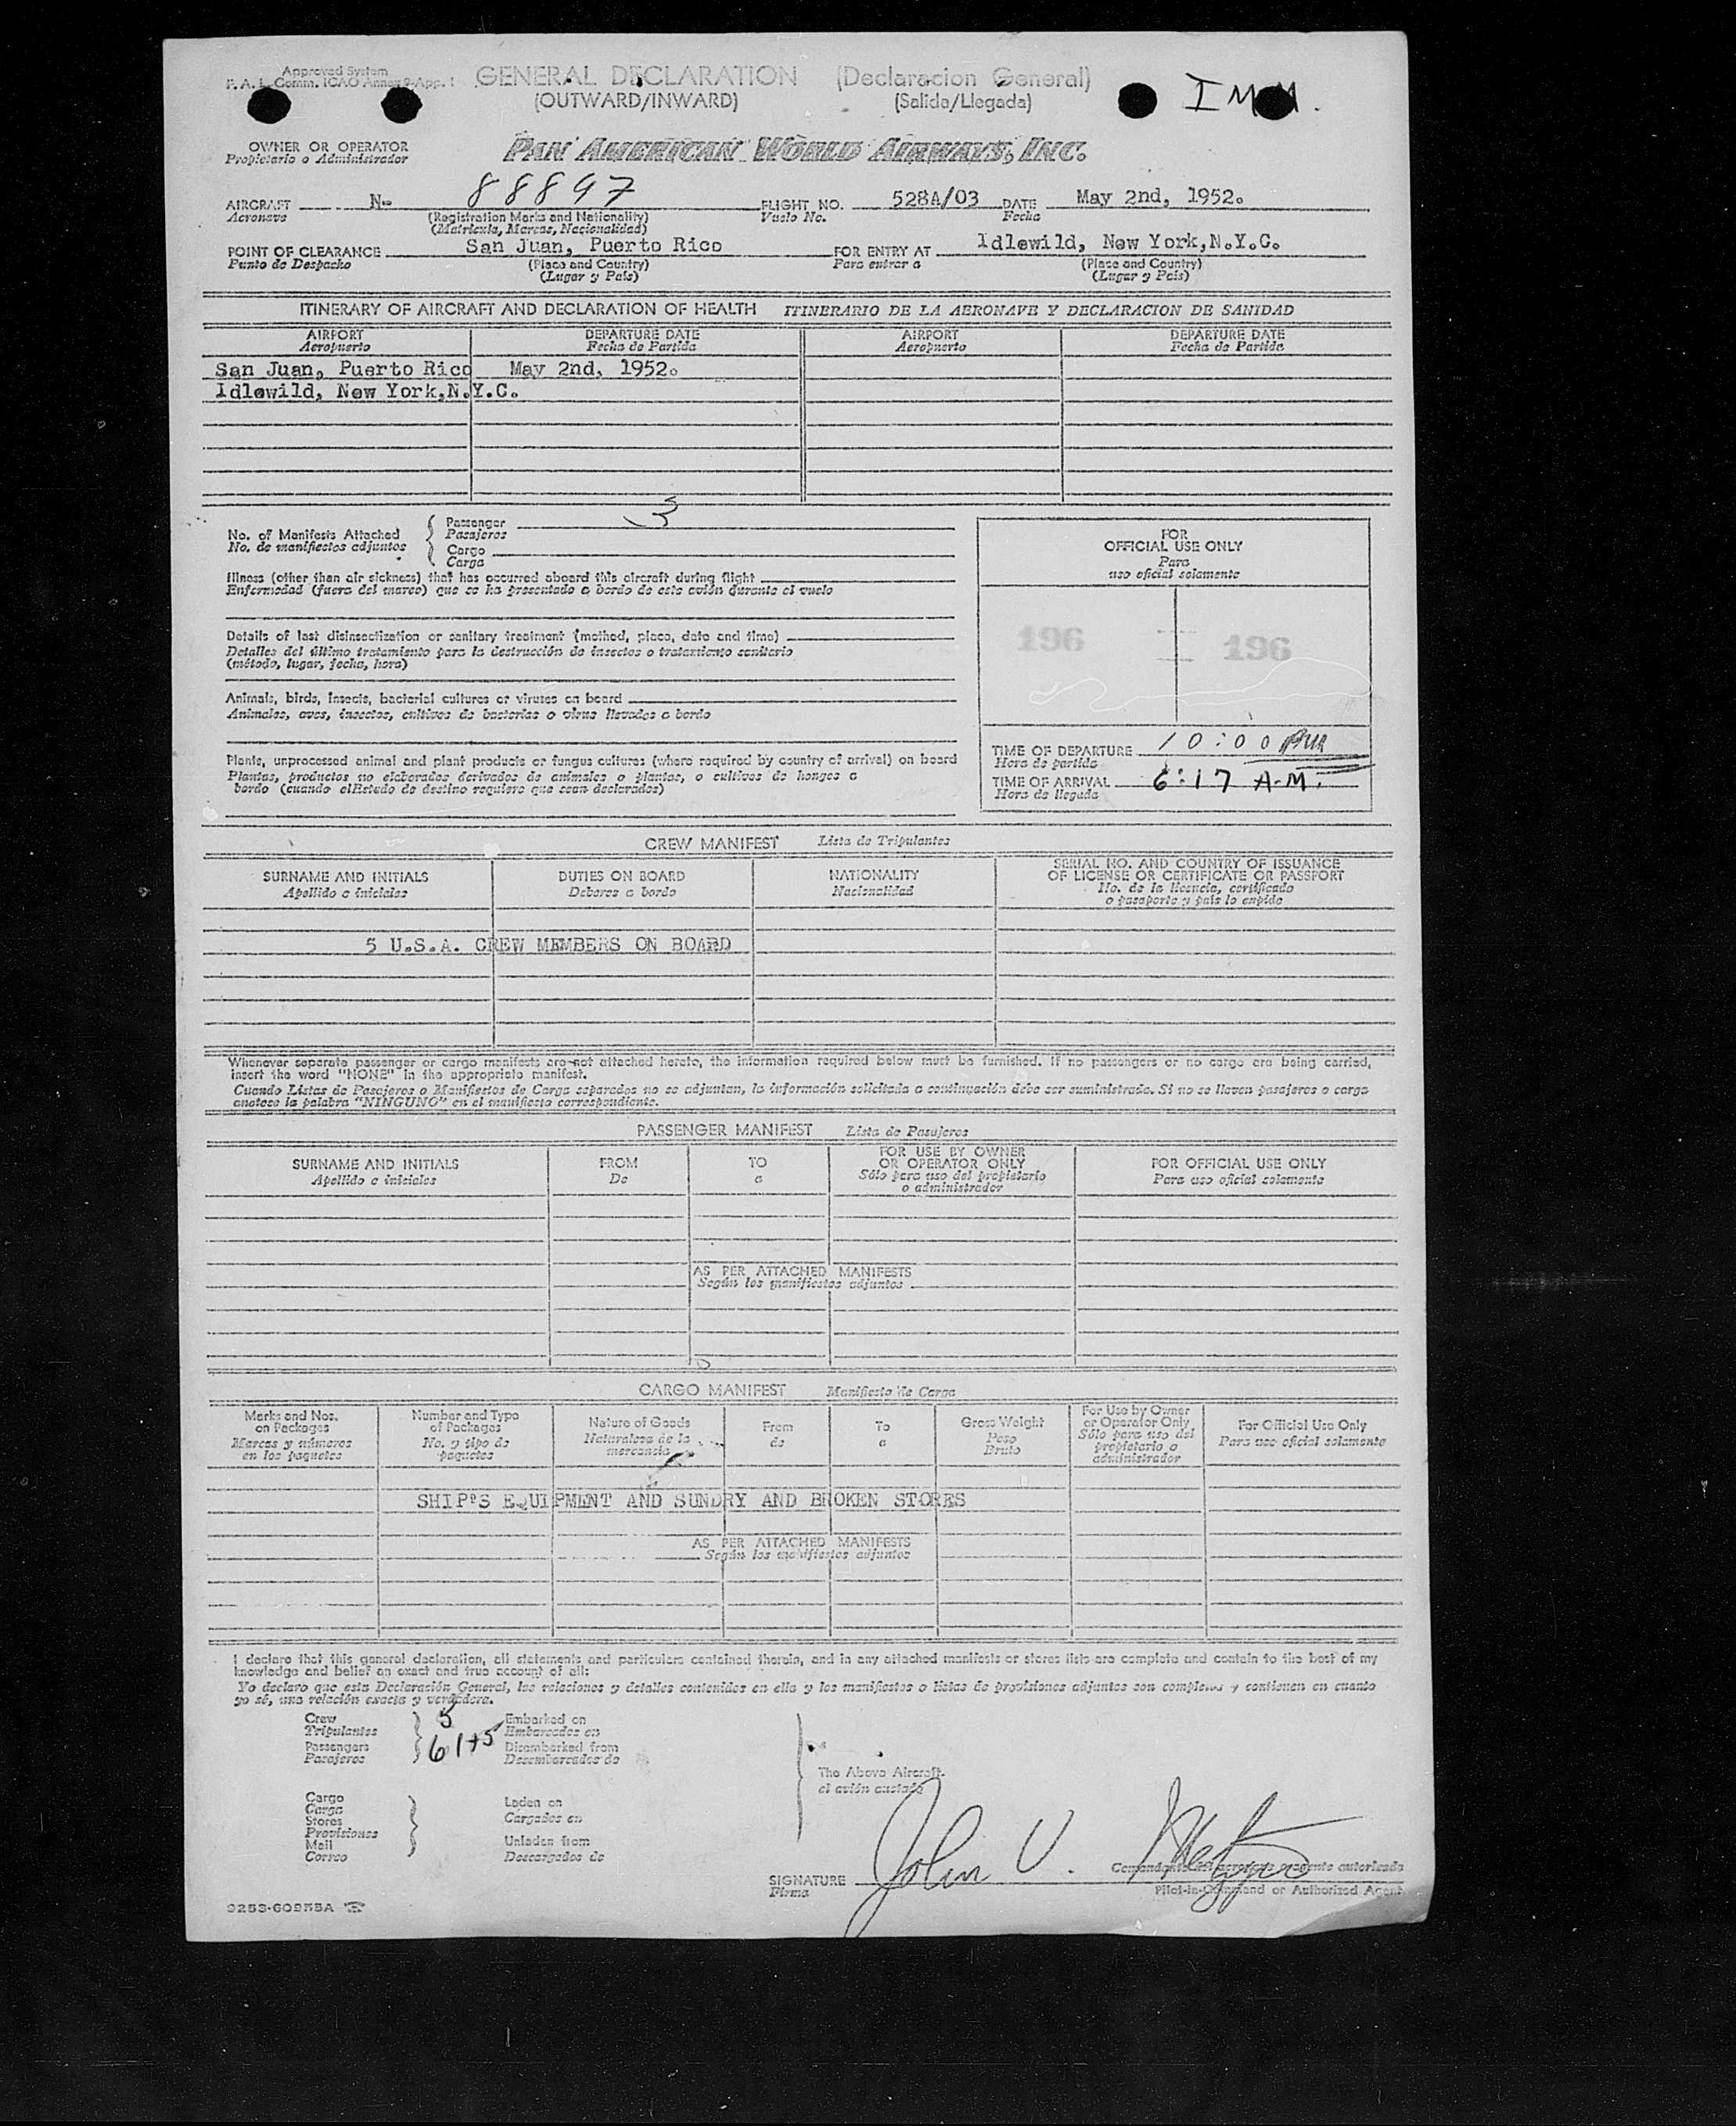 Approved System
F. A. L. Comm. ICAO Annex 9-App. 1
GENERAL DECLARATION (Declaracion General)
(OUTWARD/INWARD) (Salida/Llegada)
IMM.
OWNER OR OPERATOR
Propietario o Administrador
PAN AMERICAN WORLD AIRWAYS, INC.
AIRCRAFT N- 88897 FLIGHT NO. 528A/03 DATE May 2nd, 1952.
Aeronave (Registration Marks and Nationality) Vuelo No. Fecha
(Matricula, Marcas, Nacionalidad)
POINT OF CLEARANCE San Juan, Puerto Rico FOR ENTRY AT Idlewild, New York,N.Y.C.
Punto de Despacho (Place and Country) Para entrar a (Place and Country)
(Lugar y País) (Lugar y País)
ITINERARY OF AIRCRAFT AND DECLARATION OF HEALTH ITINERARIO DE LA AERONAVE Y DECLARACION DE SANIDAD
AIRPORT DEPARTURE DATE AIRPORT DEPARTURE DATE
Aeropuerto Fecha de Partida Aeropuerto Fecha de Partida
San Juan, Puerto Rico May 2nd, 1952.
Idlewild, New York,N.Y.C.
No. of Manifests Attached
No. de manifiestos adjuntos
Passenger 3
Pasajeros
Cargo
Carga
Illness (other than air sickness) that has occurred aboard this aircraft during flight
Enfermedad (fuera del mareo) que se ha presentado a bordo de este avión durante el vuelo
Details of last disinsectization or sanitary treatment (method, place, date and time)
Detalles del último tratamiento para la destrucción de insectos o tratamiento sanitario
(método, lugar, fecha, hora)
Animals, birds, insects, bacterial cultures or viruses on board
Animales, aves, insectos, cultivos de bacterias o virus llevados a bordo
Plants, unprocessed animal and plant products or fungus cultures (where required by country of arrival) on board
Plantas, productos no elaborados derivados de animales o plantas, o cultivos de hongos a
bordo (cuando elEstado de destino requiere que sean declarados)
FOR
OFFICIAL USE ONLY
Para
uso oficial solamente
196 196
TIME OF DEPARTURE 10:00 PM
Hora de partida
TIME OF ARRIVAL 6:17 A.M.
Hora de llegada
CREW MANIFEST Lista de Tripulantes
SURNAME AND INITIALS
Apellido e iniciales
DUTIES ON BOARD
Deberes a bordo
NATIONALITY
Nacionalidad
SERIAL NO. AND COUNTRY OF ISSUANCE
OF LICENSE OR CERTIFICATE OR PASSPORT
No. de la licencia, certificado
o pasaporte y país lo expide
5 U.S.A. CREW MEMBERS ON BOARD
Whenever separate passenger or cargo manifests are not attached hereto, the information required below must be furnished. If no passengers or no cargo are being carried,
insert the word "NONE" in the appropriate manifest.
Cuando Listas de Pasajeros o Manifiestos de Carga separados no se adjuntan, la información solicitada a continuación debe ser suministrada. Si no se llevan pasajeros o carga
anotese la palabra "NINGUNO" en el manifiesto correspondiente.
PASSENGER MANIFEST Lista de Pasajeros
SURNAME AND INITIALS
Apellido e iniciales
FROM
De
TO
a
FOR USE BY OWNER
OR OPERATOR ONLY
Sólo para uso del propietario
o administrador
FOR OFFICIAL USE ONLY
Para uso oficial solamente
AS PER ATTACHED MANIFESTS
Según los manifiestos adjuntos
CARGO MANIFEST Manifiesto de Carga
Marks and Nos.
on Packages
Marcas y números
en los paquetes
Number and Type
of Packages
No. y tipo de
paquetes
Nature of Goods
Naturaleza de la
mercancía
From
de
To
a
Gross Weight
Peso
Bruto
For Use by Owner
or Operator Only
Sólo para uso del
propietario o
administrador
For Official Use Only
Para uso oficial solamente
SHIP'S EQUIPMENT AND SUNDRY AND BROKEN STORES
AS PER ATTACHED MANIFESTS
Según los manifiestos adjuntos
I declare that this general declaration, all statements and particulars contained therein, and in any attached manifests or stores lists are complete and contain to the best of my
knowledge and belief an exact and true account of all:
Yo declaro que esta Declaración General, las relaciones y detalles contenidos en ella y los manifiestos o listas de provisiones adjuntas son completos y contienen en cuanto
yo sé, una relación exacta y verdadera.
Crew 5 Embarked on
Tripulantes Embarcados en
Passengers 61+5 Disembarked from
Pasajeros Desembarcados de
The Above Aircraft.
el avión anotado
Cargo Laden on
Carga Cargados en
Stores
Provisiones
Mail Unladen from
Correo Descargados de
SIGNATURE John V.
Firma
Comandante del aeronave o agente autorizado
Pilot-in-Command or Authorized Agent
9253-60955A